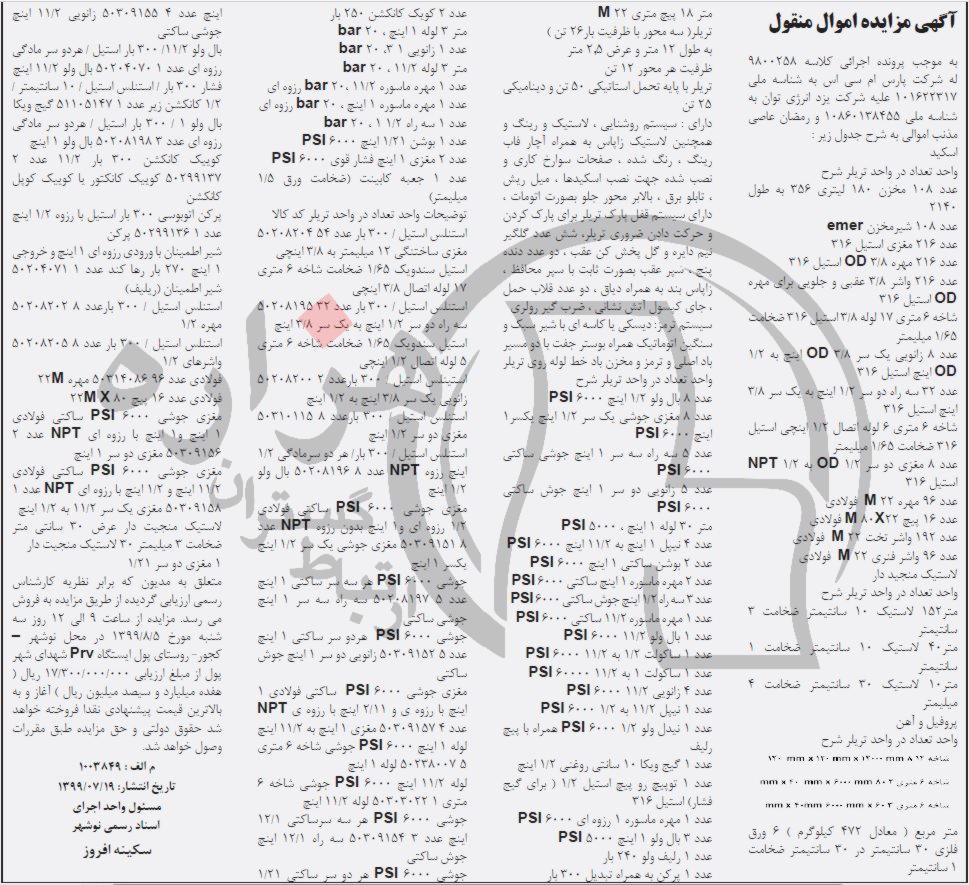 آگهی مزایده اموال منقول
به موجب پرونده اجرائی کلاسه ۹۸۰۰۲۵۸
له شرکت پارس ام سی اس به شناسه ملی
۱۰۱۶۲۲۳۱۷ علیه شرکت یزد انرژی توان به
شناسه ملی ۱۰۸۶۰۱۳۸۴۵۵ و رمضان عاصی
مذنب اموالی به شرح جدول زیر :
اسکید
واحد تعداد در واحد تریلر شرح
عدد ۱۰۸ مخزن ۱۸۰ لیتری ۳۵۶ به طول
۲۱۴۰
عدد ۱۰۸ شیرمخزن emer
عدد ۲۱۶ مغزی استیل ۳۱۶
عدد ۲۱۶ مهره ۳/۸ OD استیل ۳۱۶
عدد ۲۱۶ واشر ۳/۸ عقبی و جلویی برای مهره
OD استیل ۳۱۶
شاخه ۶ متری ۱۷ لوله ۳/۸ استیل ۳۱۶ ضخامت
۱/۶۵ میلیمتر
عدد ۸ زانویی یک سر ۳/۸ OD اینچ به ۱/۲
OD اینچ استیل ۳۱۶
عدد ۳۲ سه راه دو سر ۱/۲ اینچ به یک سر ۳/۸
اینچ استیل ۳۱۶
شاخه ۶ متری ۶ لوله اتصال ۱/۲ اینچی استیل
۳۱۶ ضخامت ۱/۶۵ میلیمتر
عدد ۸ مغزی دو سر ۱/۲ OD به ۱/۲ NPT
استیل ۳۱۶
عدد ۹۶ مهره ۲۲ M فولادی
عدد ۱۶ پیچ ۲۲×۸۰ M فولادی
عدد ۱۹۲ واشر تخت ۲۲ M فولادی
عدد ۹۶ واشر فنری ۲۲ M فولادی
لاستیک منجید دار
واحد تعداد در واحد تریلر شرح
متر۱۵۲ لاستیک ۱۰ سانتیمتر ضخامت ۳
سانتیمتر
متر۴۰ لاستیک ۱۰ سانتیمتر ضخامت ۱
سانتیمتر
متر۱۰ لاستیک ۳۰ سانتیمتر ضخامت ۴
میلیمتر
پروفیل و آهن
واحد تعداد در واحد تریلر شرح
متر مربع ( معادل ۴۷۲ کیلوگرم ) ۶ ورق
فلزی ۳۰ سانتیمتر در ۳۰ سانتیمتر ضخامت
۱ سانتیمتر
متر ۱۸ پیچ متری ۲۲ M
تریلر( سه محور با ظرفیت بار۲۶ تن )
به طول ۱۲ متر و عرض ۲٫۵ متر
ظرفیت هر محور ۱۲ تن
تریلر با پایه تحمل استاتیکی ۵۰ تن و دینامیکی
۲۵ تن
دارای : سیستم روشنایی ، لاستیک و رینگ و
همچنین لاستیک زاپاس به همراه آچار قاب
رینگ ، رنگ شده ، صفحات سوارخ کاری و
نصب شده جهت نصب اسکیدها ، میل ریش
، تابلو برق ، بالابر محور جلو بصورت اتومات ،
دارای سیستم قفل پارک تریلر برای پارک کردن
و حرکت دادن ضروری تریلر، شش عدد گلگیر
نیم دایره و گل پخش کن عقب ، دو عدد دنده
پنج ، سپر عقب بصورت ثابت با سپر محافظ ،
زاپاس بند به همراه دیاق ، دو عدد قلاب حمل
، جای کپسول آتش نشانی ، ضرب گیر رولری
سیستم ترمز: دیسکی یا کاسه ای با شیر سبک و
سنگین اتوماتیک همراه بوستر جفت با دو مسیر
باد اصلی و ترمز و مخزن باد خط لوله روی تریلر
واحد تعداد در واحد تریلر شرح
عدد ۸ بال ولو ۱/۲ اینچ ۶۰۰۰ PSI
عدد ۸ مغزی جوشی یک سر ۱/۲ اینچ یکسر۱
اینچ ۶۰۰۰ PSI
عدد ۵ سه راه سه سر ۱ اینچ جوشی ساکتی
۶۰۰۰ PSI
عدد ۵ زانویی دو سر ۱ اینچ جوش ساکتی
۶۰۰۰ PSI
متر ۳۰ لوله ۱ اینچ ، ۵۰۰۰ PSI
عدد ۴ نیپل ۱ اینچ به ۱۱/۲ اینچ ۶۰۰۰ PSI
عدد ۲ بوشن ساکتی ۱ اینچ ۶۰۰۰ PSI
عدد ۲ مهره ماسوره ۱ اینچ ساکتی ۶۰۰۰ PSI
عدد ۳ سه راه ۱/۲ اینچ جوش ساکتی ۶۰۰۰ PSI
عدد ۲ مهره ماسوره ۱۱ ساکتی ۶۰۰۰ PSI
عدد ۱ بال ولو ۱۱/۲ ۶۰۰۰ PSI
عدد ۱ ساکولت ۱/۲ به ۱۱/۲ ۶۰۰۰ PSI
عدد ۱ ساکولت ۱ به ۱۱/۲ ۶۰۰۰۰ PSI
عدد ۴ زانویی ۱۱/۲ ۶۰۰۰ PSI
عدد ۱ نیپل ۱۱/۲ به ۱/۲ ۶۰۰۰ PSI
عدد ۱ نیدل ولو ۱/۲ ۶۰۰۰ PSI همراه با پیچ
رلیف
عدد ۱ گیج ویکا ۱۰ سانتی روغنی ۱/۲ اینچ
عدد ۱ توپیچ رو پیچ استیل ۱/۲ ( برای گیج
فشار) استیل ۳۱۶
عدد ۱ مهره ماسوره ۱ رزوه ای ۶۰۰۰ PSI
عدد ۳ بال ولو ۱ اینچ ۵۰۰۰ PSI
عدد ۱ رلیف ولو ۲۴۰ بار
عدد ۱ پرکن به همراه تبدیل ۳۰۰ بار
عدد ۲ کویک کانکشن ۲۵۰ بار
متر ۳ لوله ۱ اینچ ، ۲۰ bar
عدد ۱ زانویی ۱ ،۳ ۲۰ bar
متر ۳ لوله ۱۱/۲ ، ۲۰ bar
عدد ۱ مهره ماسوره ۱۱/۲ ،۲۰ bar رزوه ای
عدد ۱ مهره ماسوره ۱ اینچ ، ۲۰ bar رزوه ای
عدد ۱ سه راه ۱/۲ ۱ ، ۲۰ bar
عدد ۱ بوشن ۱/۲۱ اینچ ۶۰۰۰ PSI
عدد ۲ مغزی ۱ اینچ فشار قوی ۶۰۰۰ PSI
عدد ۱ جعبه کابینت (ضخامت ورق ۱/۵
میلیمتر)
توضیحات واحد تعداد در واحد تریلر کد کالا
استنلس استیل / ۳۰۰ بار عدد ۵۴ ۵۰۲۰۸۲۰۴
مغزی ساختنگی ۱۲ میلیمتر به ۳/۸ اینچی
استیل سندویک ۱/۶۵ ضخامت شاخه ۶ متری
۱۷ لوله اتصال ۳/۸ اینچی
استنلس استیل / ۳۰۰ بار عدد ۳۲ ۵۰۲۰۸۱۹۵
سه راه دو سر ۱/۲ اینچ به یک سر ۳/۸ اینچ
استیل سندویک ۱/۶۵ ضخامت شاخه ۶ متری
۵ لوله اتصال ۱/۲ اینچی
استیلنس استیل / ۳۰۰ بارعدد ۲ ۵۰۲۰۸۲۰۰
زانویی یک سر ۳/۸ اینچ به ۱/۲ اینچ
استنلس استیل / ۳۰۰ بارعدد ۸ ۵۰۳۱۰۱۱۵
مغزی دو سر ۱/۲ اینچ
استنلس استیل / ۳۰۰ بار/ هر دو سرمادگی ۱/۲
اینچ رزوه NPT عدد ۸ ۵۰۲۰۸۱۹۶ بال ولو
۱/۲ اینچ
مغزی جوشی ۶۰۰۰ PSI ساکتی فولادی
۱/۲ رزوه ای و۱ اینچ بدون رزوه NPT عدد
۸ ۵۰۳۰۹۱۵۱ مغزی جوشی یک سر ۱/۲ اینچ
یکسر ۱ اینچ
جوشی ۶۰۰۰ PSI هر سه سر ساکتی ۱ اینچ
عدد ۵ ۵۰۲۰۸۱۹۷ سه راه سه سر ۱ اینچ
جوشی ساکتی
جوشی ۶۰۰۰ PSI هردو سر ساکتی ۱ اینچ
عدد ۵ ۵۰۳۰۹۱۵۲ زانویی دو سر ۱ اینچ جوش
ساکتی
مغزی جوشی ۶۰۰۰ PSI ساکتی فولادی ۱
اینچ با رزوه ی و ۲/۱۱ اینچ با رزوه ی NPT
عدد ۴ ۵۰۳۰۹۱۵۷ مغزی ۱ اینچ به ۱۱/۲ اینچ
لوله ۱ اینچ ۶۰۰۰ PSI جوشی شاخه ۶ متری
۵ ۵۰۲۳۸۰۰۷ لوله ۱ اینچ
لوله ۱۱/۲ اینچ ۶۰۰۰ PSI جوشی شاخه ۶
متری ۱ ۵۰۳۰۳۰۲۲ لوله ۱۱/۲ اینچ
جوشی ۶۰۰۰ PSI هر سه سرساکتی ۱۲/۱
اینچ عدد ۳ ۵۰۳۰۹۱۵۴ سه راه ۱۲/۱ اینچ
جوش ساکتی
جوشی ۶۰۰۰ PSI هر دو سر ساکتی ۱/۲۱
اینچ عدد ۴ ۵۰۳۰۹۱۵۵ زانویی ۱۱/۲ اینچ
جوشی ساکتی
بال ولو ۱۱/۲/ ۳۰۰ بار استیل / هردو سر مادگی
رزوه ای عدد ۱ ۵۰۲۰۴۰۷۰ بال ولو ۱۱/۲ اینچ
فشار ۳۰۰ بار / استنلس استیل / ۱۰ سانتیمتر /
۱/۲ کانکشن زیر عدد ۱ ۵۱۱۰۵۱۴۷ گیج ویکا
بال ولو ۱ / ۳۰۰ بار استیل / هردو سر مادگی
رزوه ای عدد ۳ ۵۰۲۰۸۱۹۸ بال ولو ۱ اینچ
کوییک کانکشن ۳۰۰ بار ۱۱/۲ عدد ۲
۵۰۲۹۹۱۳۷ کوییک کانکتور یا کوییک کوپل
کانکشن
پرکن اتوبوسی ۳۰۰ بار استیل با رزوه ۱/۲ اینچ
عدد ۱ ۵۰۲۹۹۱۳۶ پرکن
شیر اطمینان با ورودی رزوه ای ۱ اینچ و خروجی
۱ اینچ ۲۷۰ بار رها کند عدد ۱ ۵۰۲۰۴۰۷۱
شیر اطمینان (زیلیف)
استنلس استیل / ۳۰۰ بارعدد ۸ ۵۰۲۰۸۲۰۲
مهره ۱/۲
استنلس استیل / ۳۰۰ بار عدد ۸ ۵۰۲۰۸۲۰۵
واشرهای ۱/۲
فولادی عدد ۹۶ ۵۰۳۱۴۰۸۶ مهره ۲۲M
فولادی عدد ۱۶ پیچ ۸۰ X ۲۲M
مغزی جوشی ۶۰۰۰ PSI ساکتی فولادی
۱ اینچ و۱ اینچ با رزوه ای NPT عدد ۲
۵۰۳۰۹۱۵۶ مغزی دو سر ۱ اینچ
مغزی جوشی ۶۰۰۰ PSI ساکتی فولادی
۱۱/۲ اینچ و ۱/۲ اینچ با رزوه ای NPT عدد ۱
۵۰۳۰۹۱۵۸ مغزی یک سر ۱۱/۲ به ۱/۲ اینچ
لاستیک منجیت دار عرض ۳۰ سانتی متر
ضخامت ۳ میلیمتر ۳۰ لاستیک منجیت دار
۱ مغزی دو سر ۱/۲۱
متعلق به مدیون که برابر نظریه کارشناس
رسمی ارزیابی گردیده از طریق مزایده به فروش
می رسد. مزایده از ساعت ۹ الی ۱۲ روز سه
شنبه مورخ ۱۳۹۹/۸/۵ در محل نوشهر –
کجور- روستای پول ایستگاه Prv شهدای شهر
پول از مبلغ ارزیابی ۱۷/۳۰۰/۰۰۰/۰۰۰ ریال (
هفده میلیارد و سیصد میلیون ریال ) آغاز و به
بالاترین قیمت پیشنهادی نقدا فروخته خواهد
شد حقوق دولتی و حق مزایده طبق مقررات
وصول خواهد شد.
م الف : ۱۰۰۳۸۴۹
تاریخ انتشار: ۱۳۹۹/۰۷/۱۹
مسئول واحد اجرای
اسناد رسمی نوشهر
سکینه افروز
هزاره
گستران
ارتباط